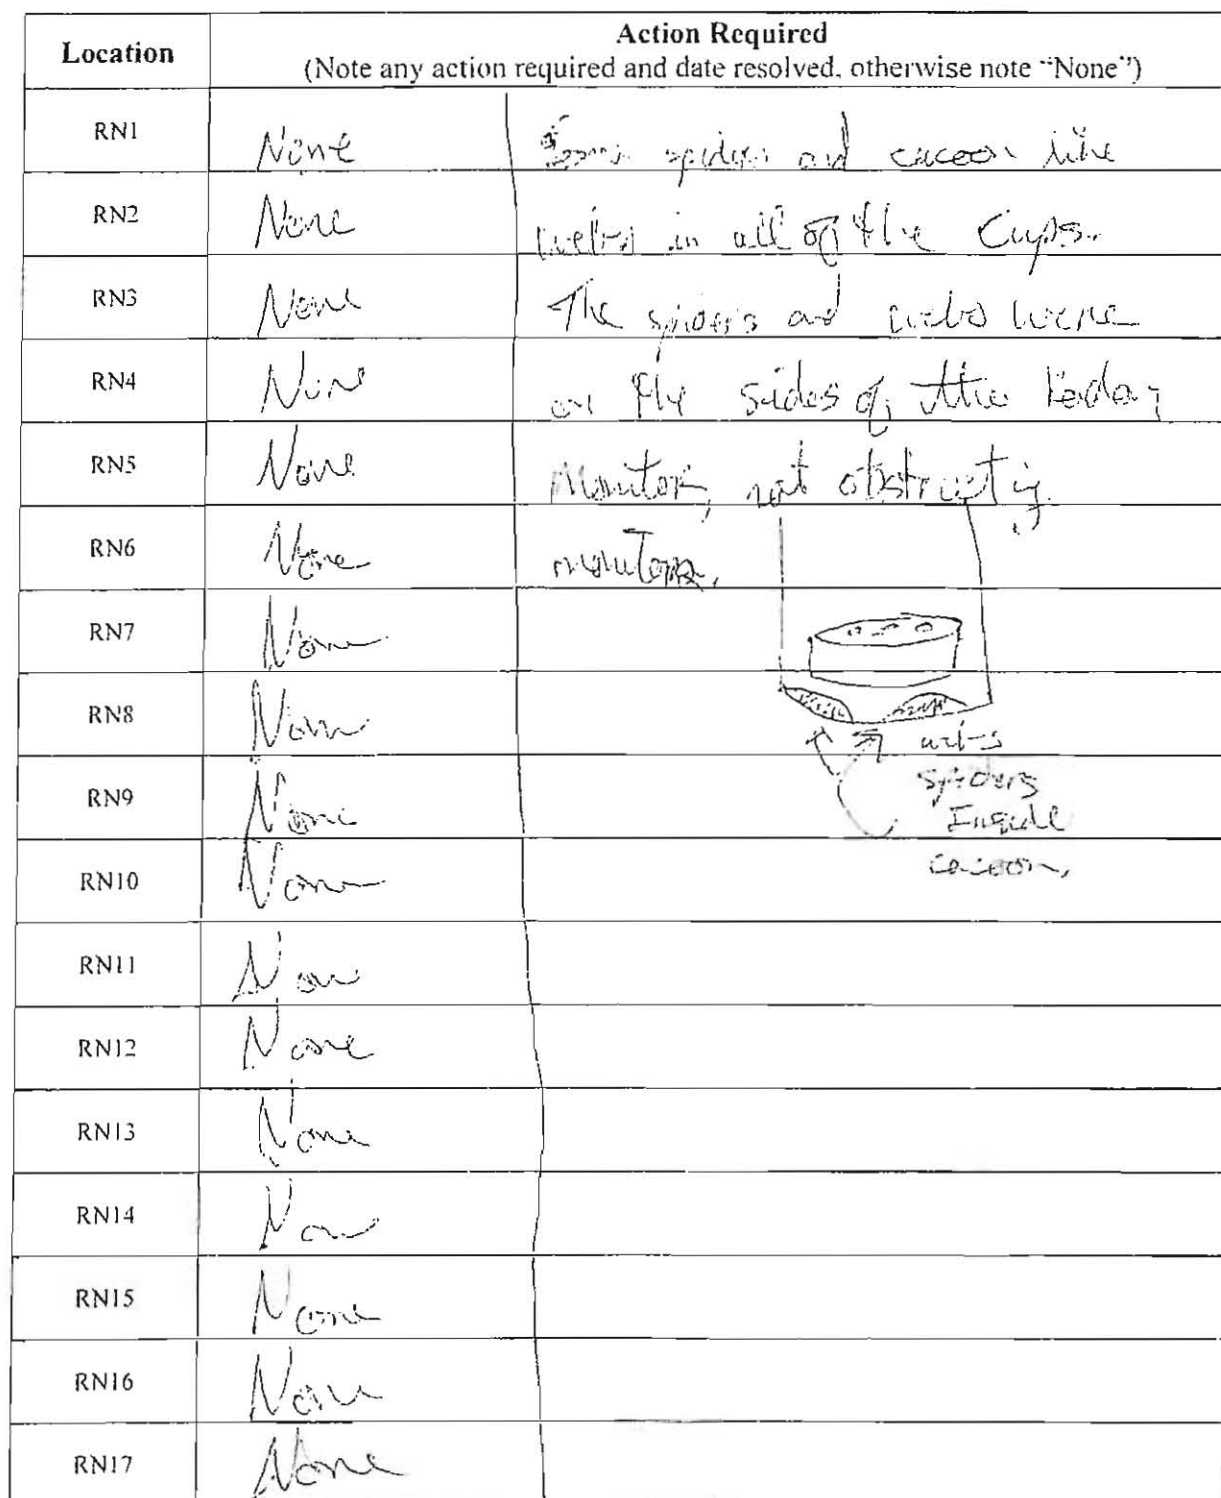 Location Action Required
(Note any action required and date resolved, otherwise note "None")
RN1 None Some spiders and cacoon like
RN2 None webs in all of the Cups.
RN3 None The spiders and webs were
RN4 None on the sides of the Radon
RN5 None Monitor, not obstructing
RN6 None monitors.
RN7 None
RN8 None
webs
RN9 None spiders
Inside
RN10 None cacoon,
RN11 None
RN12 None
RN13 None
RN14 None
RN15 None
RN16 None
RN17 None